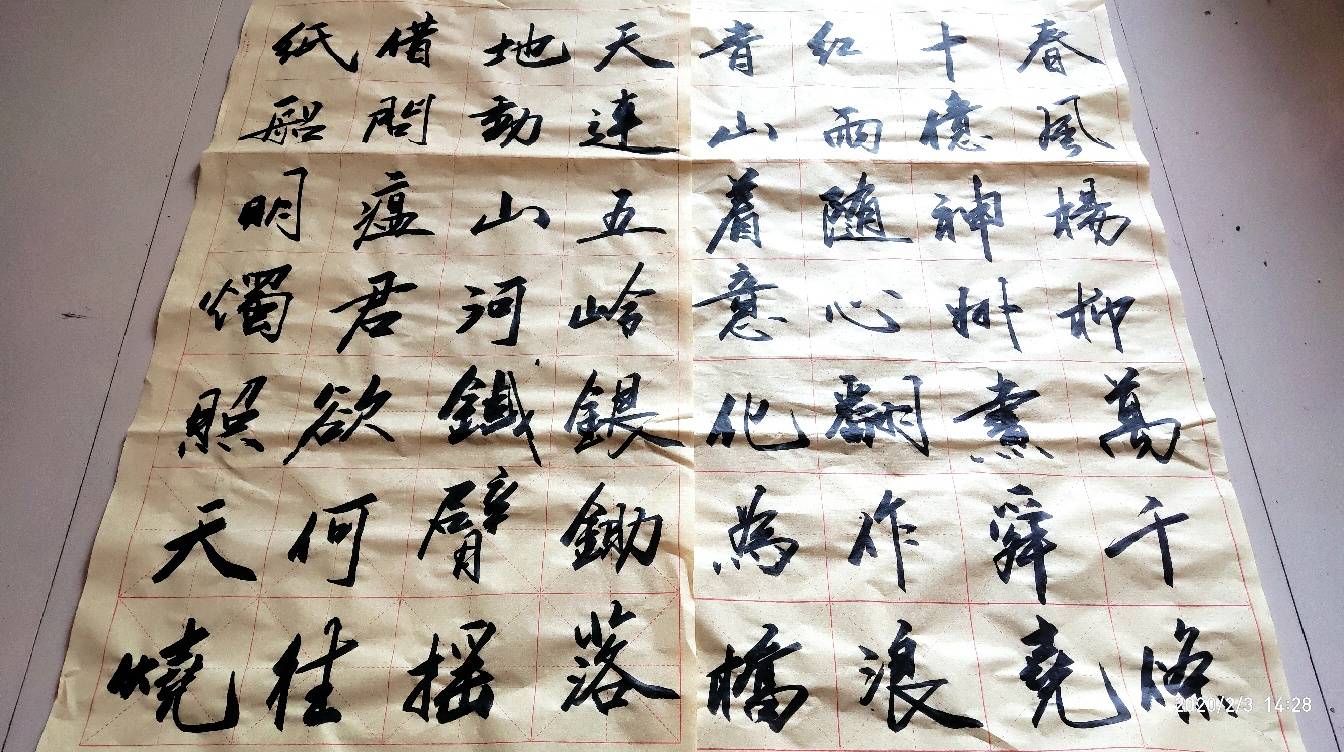 春風楊柳萬千條
十億神州盡舜堯
紅雨随心翻作浪
青山着意化為橋
天連五岭銀鋤落
地動山河鐵臂摇
借問瘟君欲何往
紙船明燭照天燒
2020/2/3 14:28